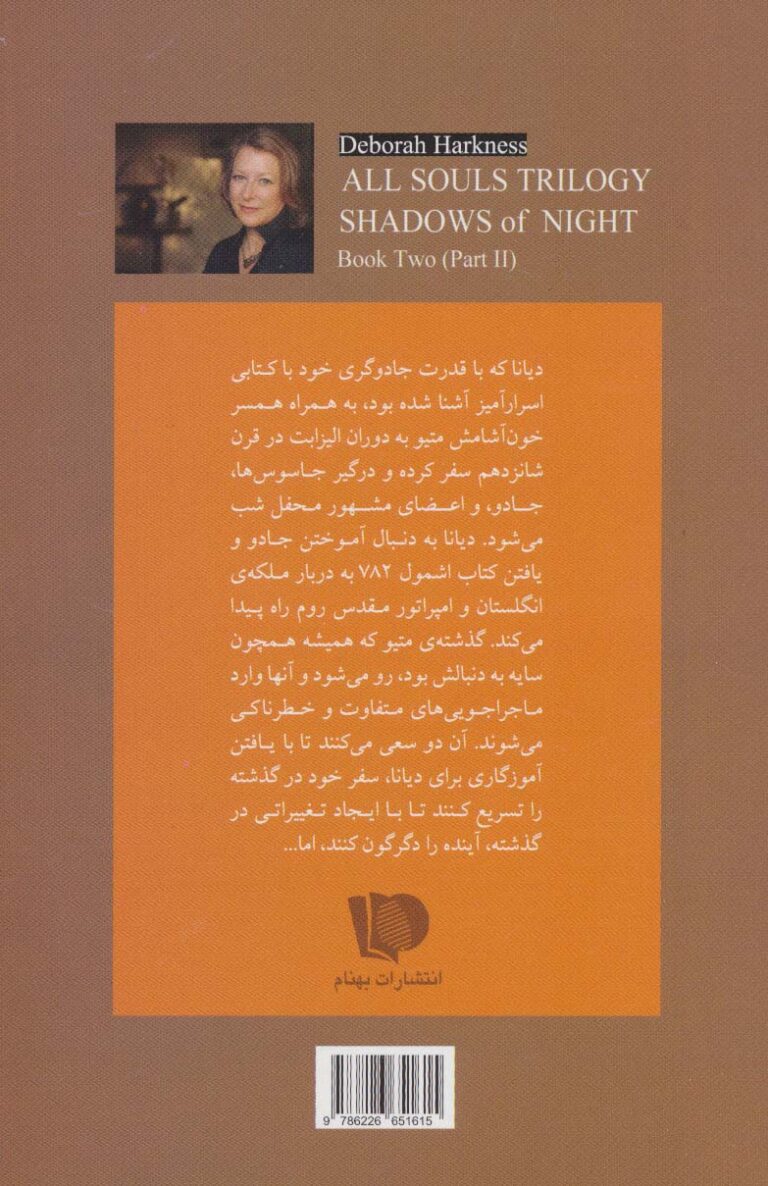 Deborah Harkness
ALL SOULS TRILOGY
SHADOWS of NIGHT
Book Two (Part II)
دیانا که با قدرت جادوگری خود با کتابی
اسرارآمیز آشنا شده بود، به همراه همسر
خون‌آشامش متیو به دوران الیزابت در قرن
شانزدهم سفر کرده و درگیر جاسوس‌ها،
جادو، و اعضای مشهور محفل شب
می‌شود. دیانا به دنبال آموختن جادو و
یافتن کتاب اشمول ۷۸۲ به دربار ملکه‌ی
انگلستان و امپراتور مقدس روم راه پیدا
می‌کند. گذشته‌ی متیو که همیشه همچون
سایه به دنبالش بود، رو می‌شود و آنها وارد
ماجراجویی‌های متفاوت و خطرناکی
می‌شوند. آن دو سعی می‌کنند تا با یافتن
آموزگاری برای دیانا، سفر خود در گذشته
را تسریع کنند تا با ایجاد تغییراتی در
گذشته، آینده را دگرگون کنند، اما...
انتشارات بهنام
9 786226 651615